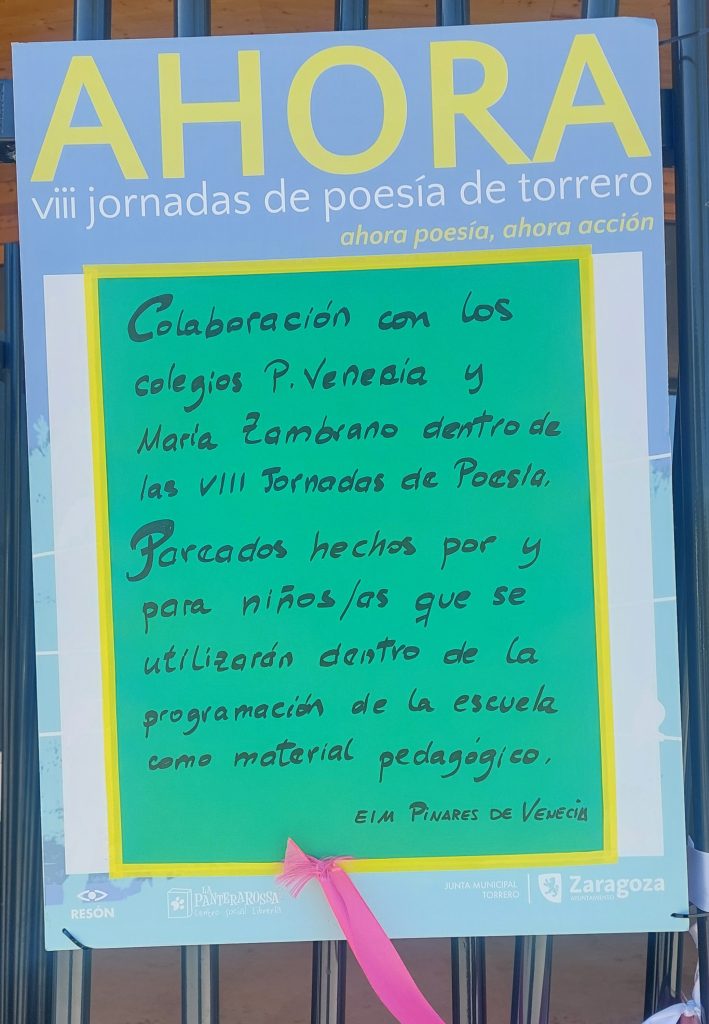 AHORA
viii jornadas de poesía de torrero
ahora poesía, ahora acción
Colaboración con los
colegios P. Venecia y
María Zambrano dentro de
las VIII Jornadas de Poesía.
Pareados hechos por y
para niños/as que se
utilizarán dentro de la
programación de la escuela
como material pedagógico.
EIM PINARES DE VENECIA
RESÓN
LA PANTERA ROSSA
Centro Social Librería
JUNTA MUNICIPAL
TORRERO
Zaragoza
AYUNTAMIENTO